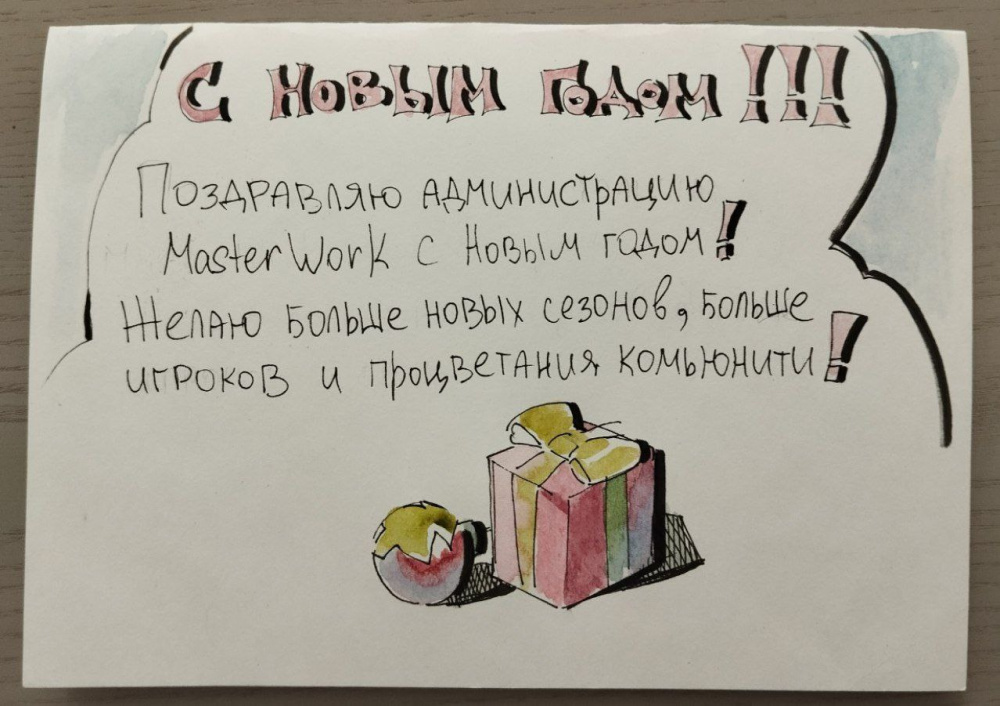 С НОВЫМ ГОДОМ!!!
Поздравляю администрацию
MasterWork с Новым годом!
Желаю больше новых сезонов, больше
игроков и процветания комьюнити!